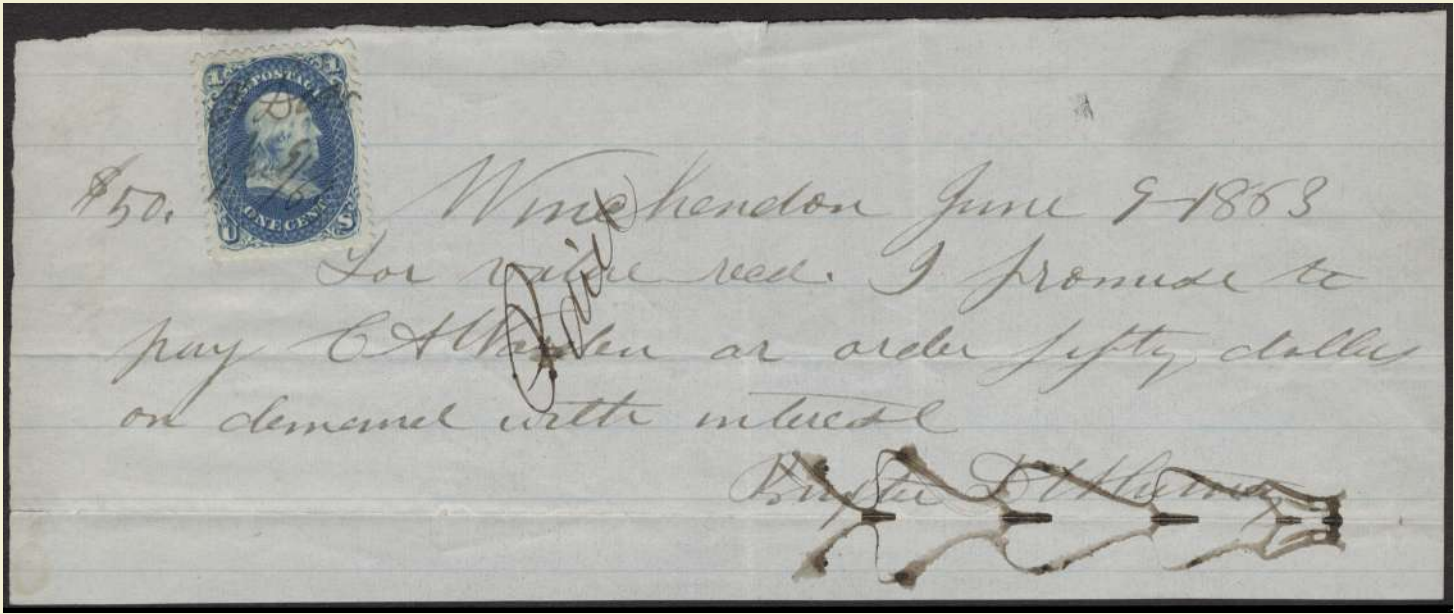 1 1
U.S. POSTAGE
ONE CENT
U S
$50. Winchendon June 9 1863
For value recd. I promise to
pay C A Worden or order fifty dollars
on demand with interest
Paid